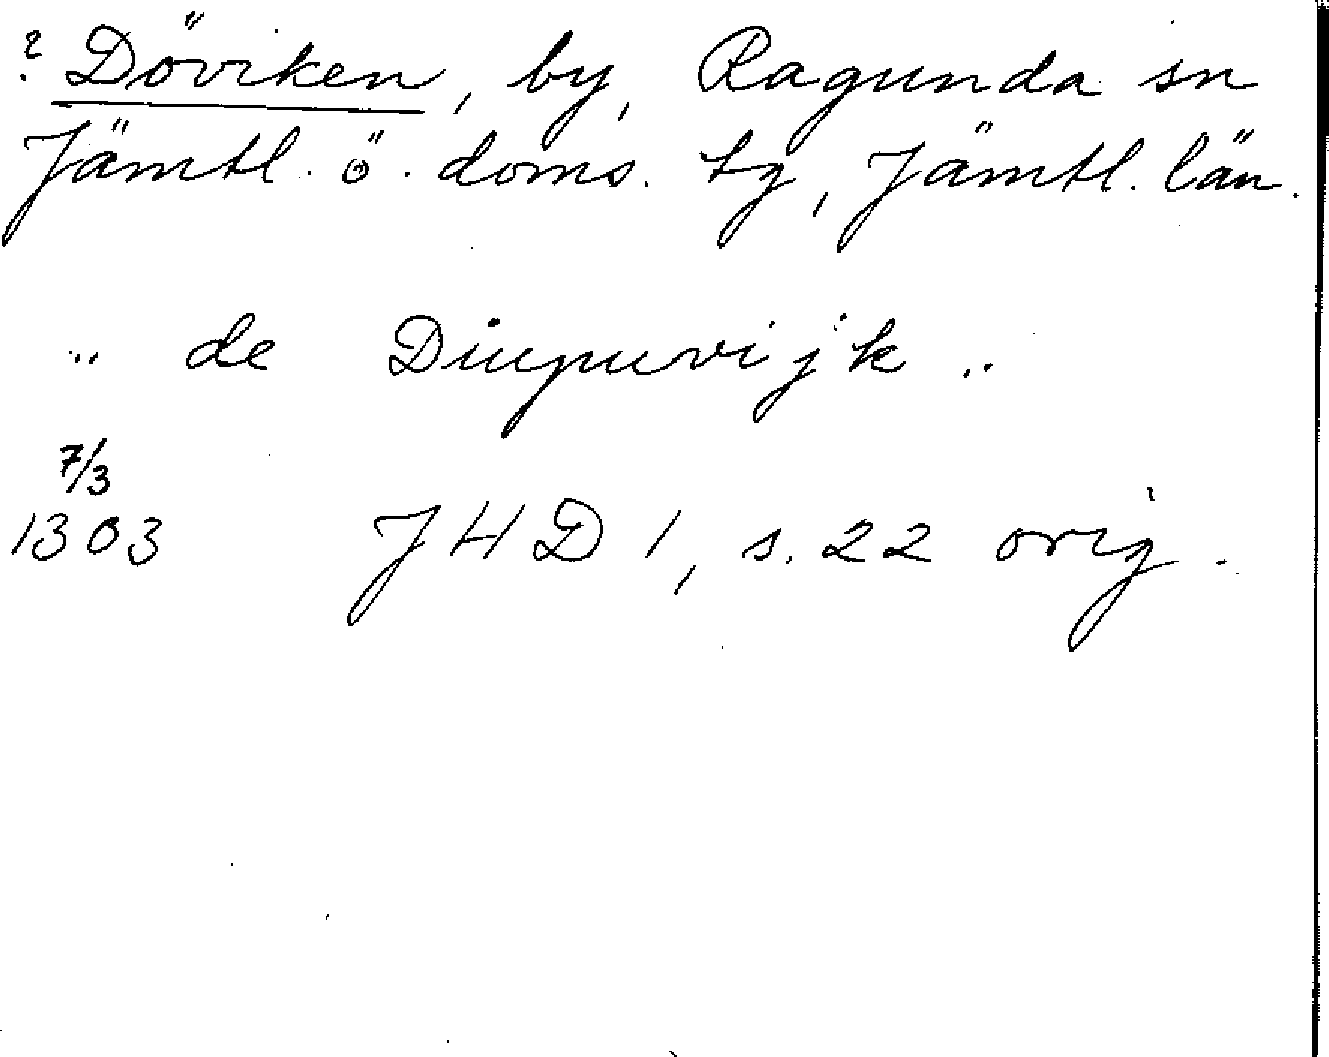 ? Döviken, by, Ragunda sn
Jämtl. ö. doms. tg, Jämtl. län.
.. de Diupuvijk ..
7/3
1303 JHD 1, s. 22 orig.